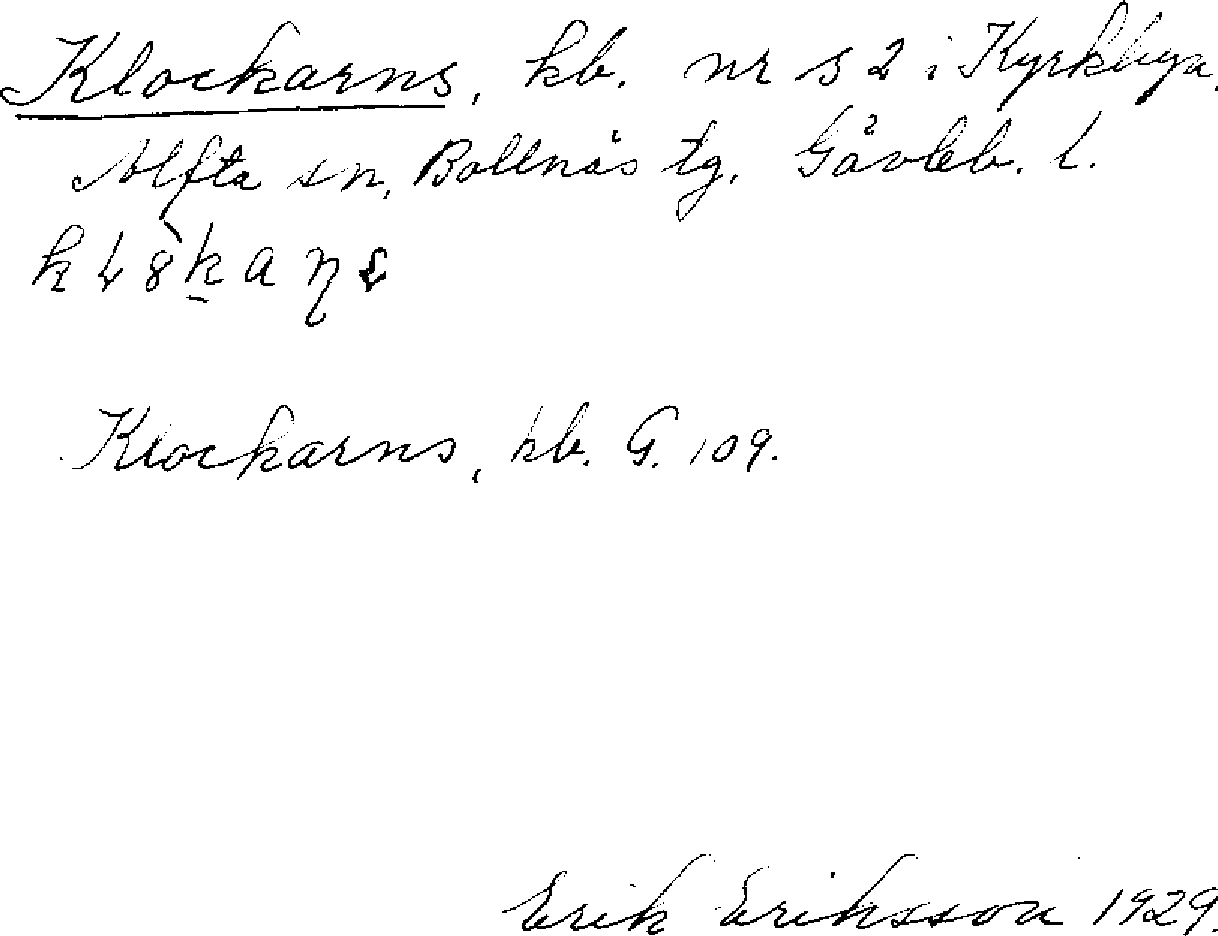 Klockarns, kb. nr s 2 i Kyrkbyn.
Alfta sn, Bollnäs tg, Gävleb. l.
Klockarns, kb. G. 109.
Erik Eriksson 1929.